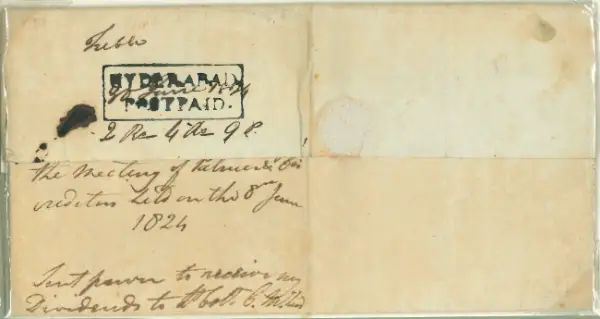 HYDERABAD
9th June 1824
POSTPAID.
2 Rs 4 As 9 P.
the Meeting of
creditors held on the 8th June
1824
Sent power to receive my
Dividends to